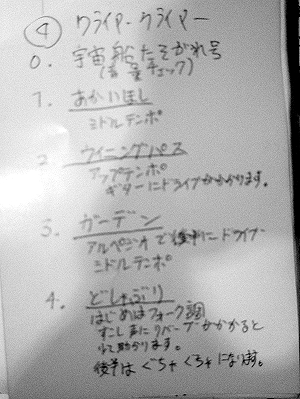 ④ クライヤー・クライヤー
0. 宇宙船たそがれ号
(音量チェック)
1. あかいほし
ミドルテンポ
2. ウイニングパス
アップテンポ
ギターにドライブかかります。
3. ガーデン
アルペジオで後半にドライブ
ミドルテンポ
4. どしゃぶり
はじめはフォーク調
すこし声にリバーブかかると
助かります。
後半はぐちゃぐちゃになります。